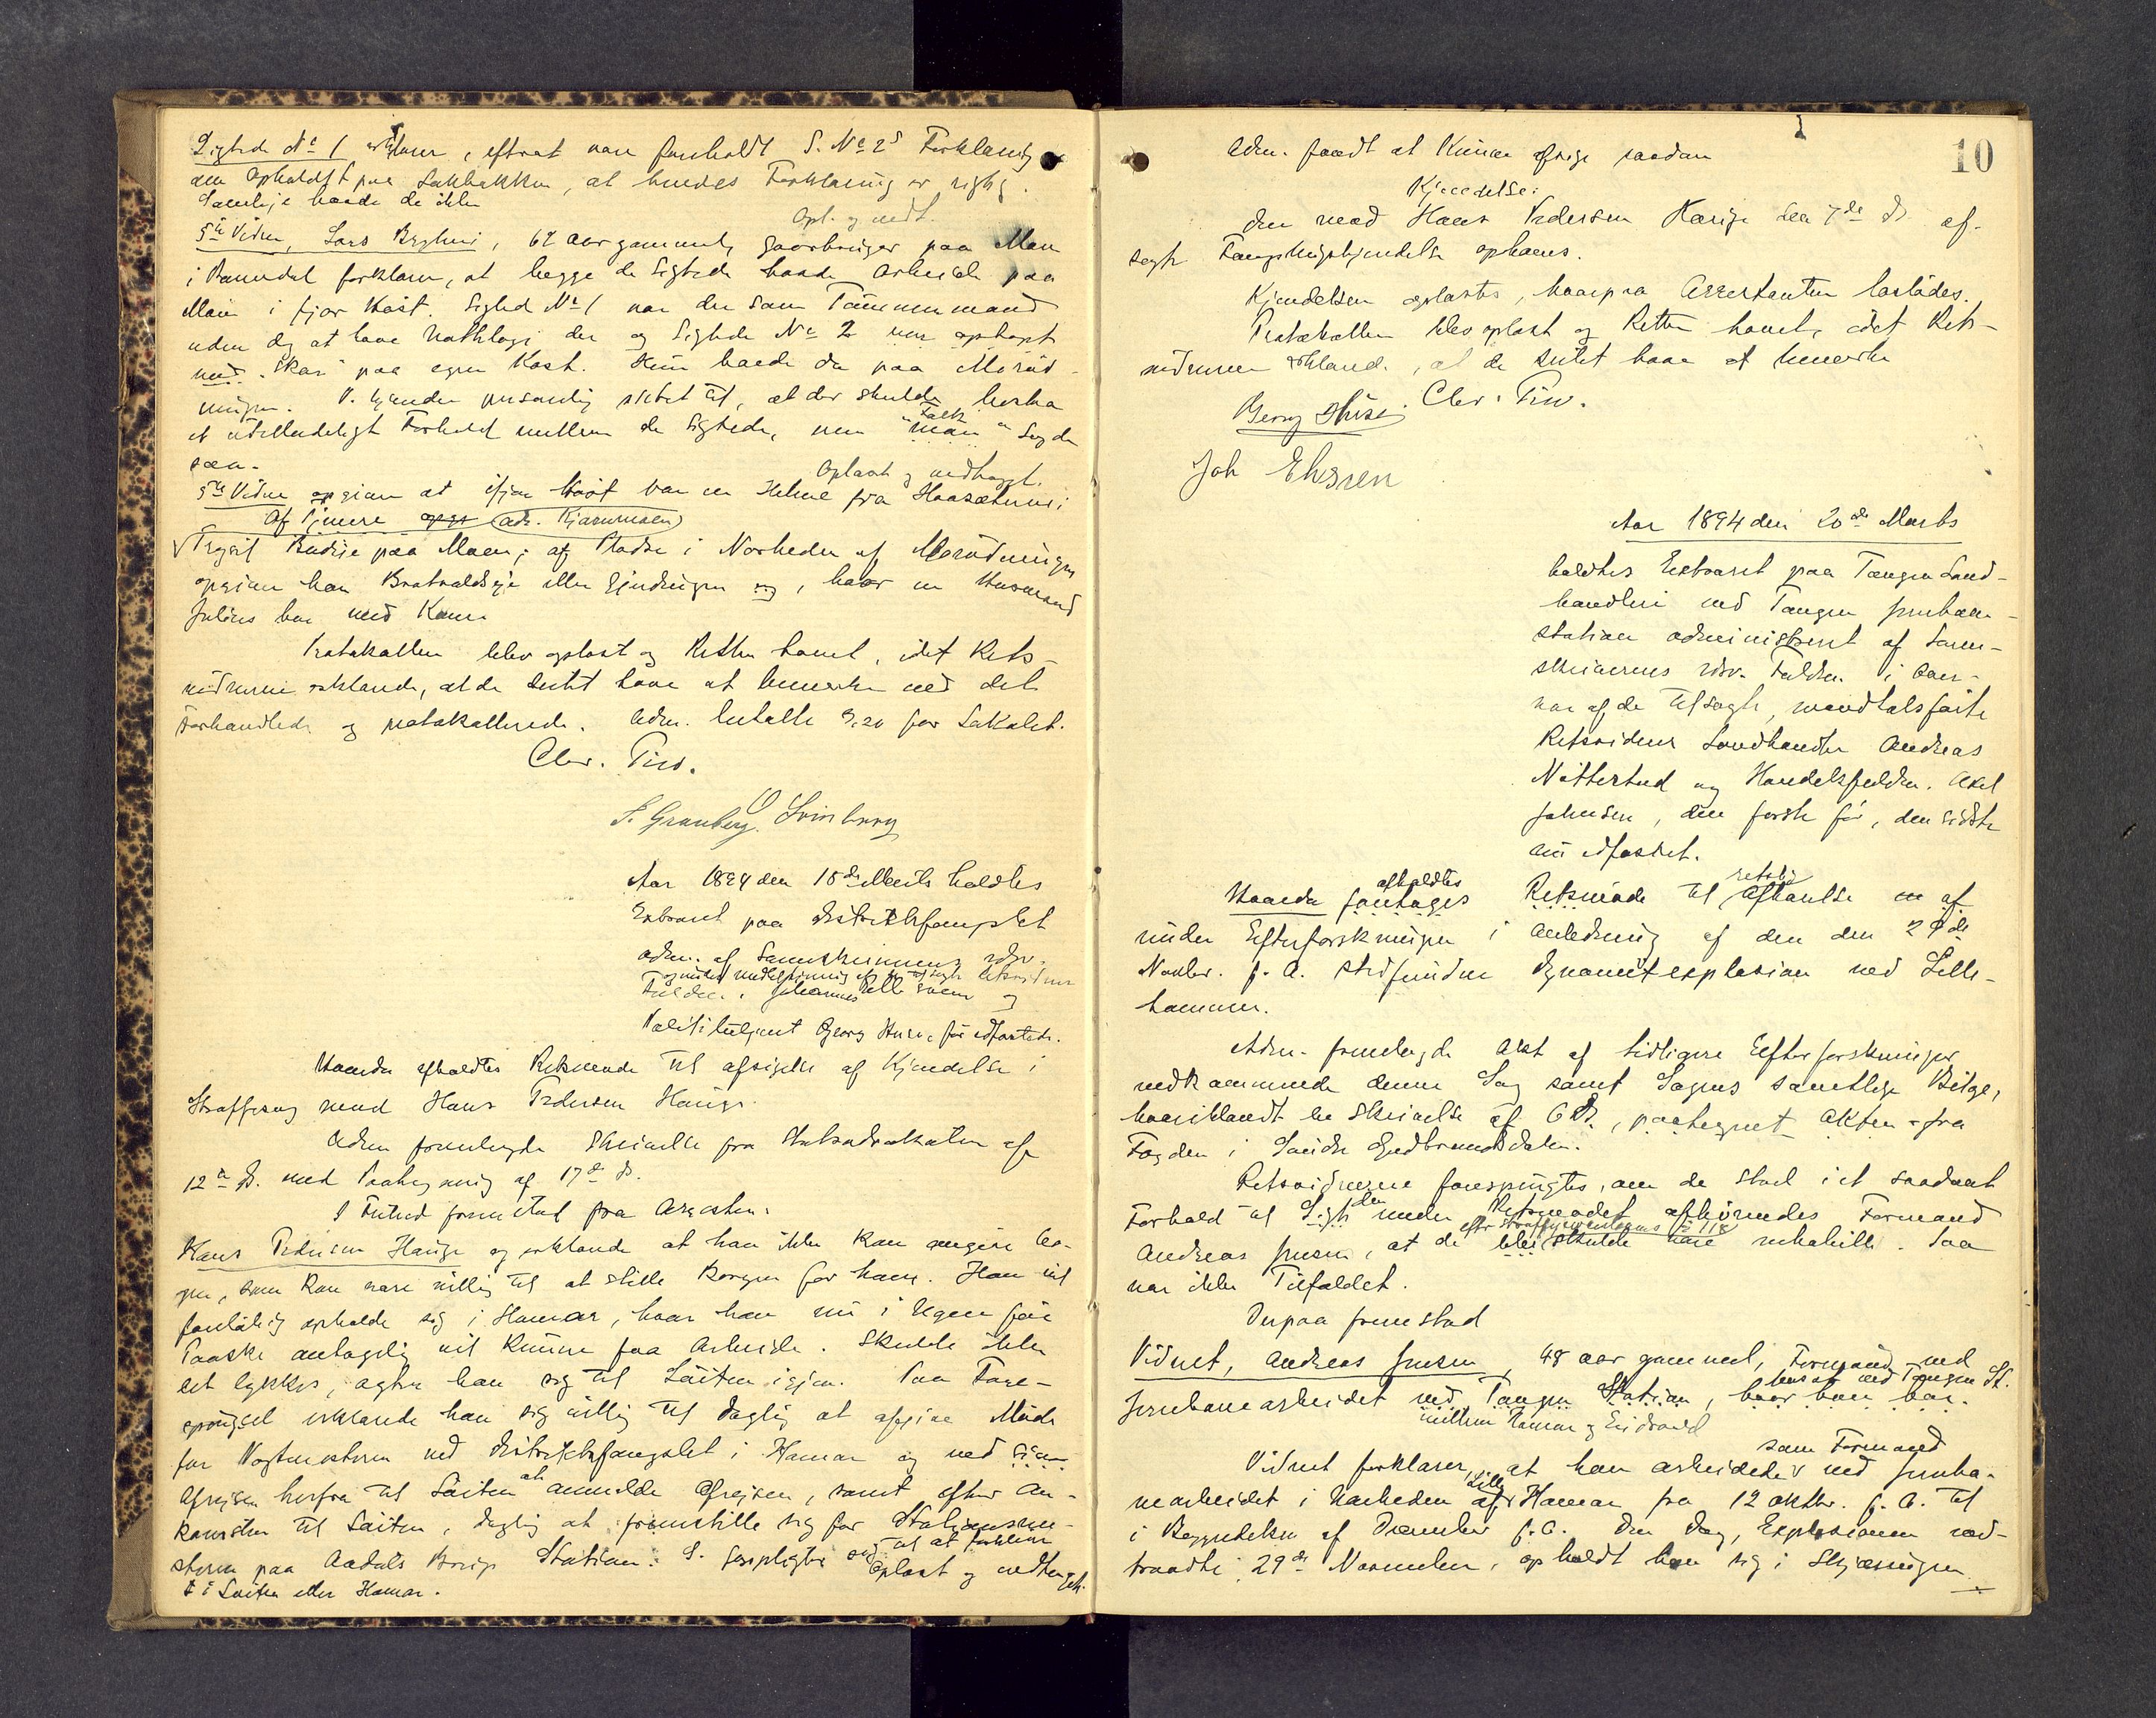 Sigtede No 1 erklærer, eftrat være foreholdt S. No 2s Forklaring
om Opholdet paa Løkbakken, at hendes Forklaring er rigtig.
Samleje havde de ikke
Opl. og vedt.
5te Vidne, Lars 62 Aar gammel, Gaardbruger paa Moen
i Romedal forklarer, at begge de Sigtede havde Arbeide paa
Moen i fjor Høst. Sigtede No 1 var der som Tømmermand
uden dog at have Natlogi der og Sigtede No 2 var optaget
med paa egen Kost. Hun boede da paa Morud-
ningen. V. kjender personlig intet til, at der skulde herske
et utilladeligt Forhold mellem de Sigtede, men "Folk" sagde
saa.
Oplæst og vedtaget.
5te Vidne opgiver at ifjor Høst var en Helene fra
Af Tjenere (adr. Kjærnmoen)
Trysil Budeje paa Moen; af Pladse i Nærheden af Morudningen
opgiver han eller Ejendingen , hvor en Husmand
Julius bor med Kone.
Protokollen blev oplæst og Retten hævet, idet Rets-
vidnerne erklærede, at de Intet have at bemærke ved det
Forhandlede og protokollerede. Adm. betalte 3,20 for Lokalet.
Chr. Piro.
S. Granberg. O Svinberg
Aar 1894 den 18de Marts holdtes
Extraret paa Distriktsfængslet
adm. af Sorenskriverens edsv.
og under medbetjening af de tilsagte Retsvidner
Fuldm. Johannes og
Politibetjent Georg Huse, før edfæstede.
Hvorda afholdtes Retsmøde til afsigelse af Kjendelse i
Straffesag mod Hans Pedersen Hauge.
Adm. fremlagde Skrivelse fra Statsadvokaten af
12te ds. med Paategning af 17de ds.
I Frihed fremstod fra Arresten.
Hans Pedersen Hauge og erklærede at han ikke kan opgive No-
gen, som kan være villig til at stille Borgen for ham. Han vil
foreløbig opholde sig i Hamar, hvor han nu i Ugen før
Paaske antagelig vil kunne faa Arbeide. Skulde ikke
det lykkes, agter han sig til Løiten igjen. Paa Fore-
spørgsel erklærede han sig villig til daglig at afgive Møde
for Vagtmesteren ved Distriktsfængslet i Hamar og ved sin
Afreisen herfra til Løiten at anmelde Afreisen, samt efter An-
komsten til Løiten, daglig at fremstille sig for Stationsme-
steren paa Aadals Brug Station. S. forpligter sig til at forblive
Oplæst og vedtaget.
‡ i Løiten eller Hamar.
10
Adm. fandt at kunne afsige saadan
Kjendelse:
Den mod Hans Pedersen Hauge den 7de ds. af-
sagte Fængslingskjendelse ophæves.
Kjendelsen oplæstes, hvorpaa Arrestanten løslodes.
Protokollen blev oplæst og Retten hævet, idet Rets-
vidnerne erklærede, at de Intet have at bemærke
Chr. Piro.
Georg Huse.
Joh
Aar 1894 den 20de Marts
holdtes Extraret paa Tangen Land-
handleri ved Tangen Jernbane-
station administreret af Soren-
skriverens edsv. Fuldm. i Over-
vær af de tilsagte, mandtalsførte
Retsvidner Landhandler Andreas
Nøttestad og Handelsfuldm. Axel
Johnsen, den første før, den sidste
nu edfæstet.
Hvorda foretoges afholdtes Retsmøde til retslig Afhørelse af
under Efterforskningen i Anledning af den den 29de
Novbr. f. A. stedfundne Dynamitexplosion ved Lille-
hammer.
Adm. fremlagde Akt af tidligere Efterforskninger
vedkommende denne Sag samt Sagens samtlige Bilage,
hvoriblandt en Skrivelse af 6 ds., paategnet Akten fra
Fogden i Søndre Gudbrandsdalen.
Retsvidnerne forespurgtes, om de stod i et saadant
Forhold til den under Retsmødet afhørendes Formand
Andreas Jensen, at de efter Straffeproceslovens § 118 skulde være inhabile. Saa
var ikke Tilfældet.
Derpaa fremstod
Vidnet, Andreas Jensen, 48 aar gammel, Formand ved
Jernbanearbeidet ved Tangen Station, hvor han bor.
bosat ved Tangen St.
mellem Hamar og Eidsvold
Vidnet forklarer, at han arbeidede som Formand ved Jernba-
nearbeidet i Nærheden af Lille Hamar fra 12 Oktbr. f. A. til
i Begyndelsen af December f. A. Den Dag, Explosionen ind-
traadte, 29de November, opholdt han sig i Skjæringen